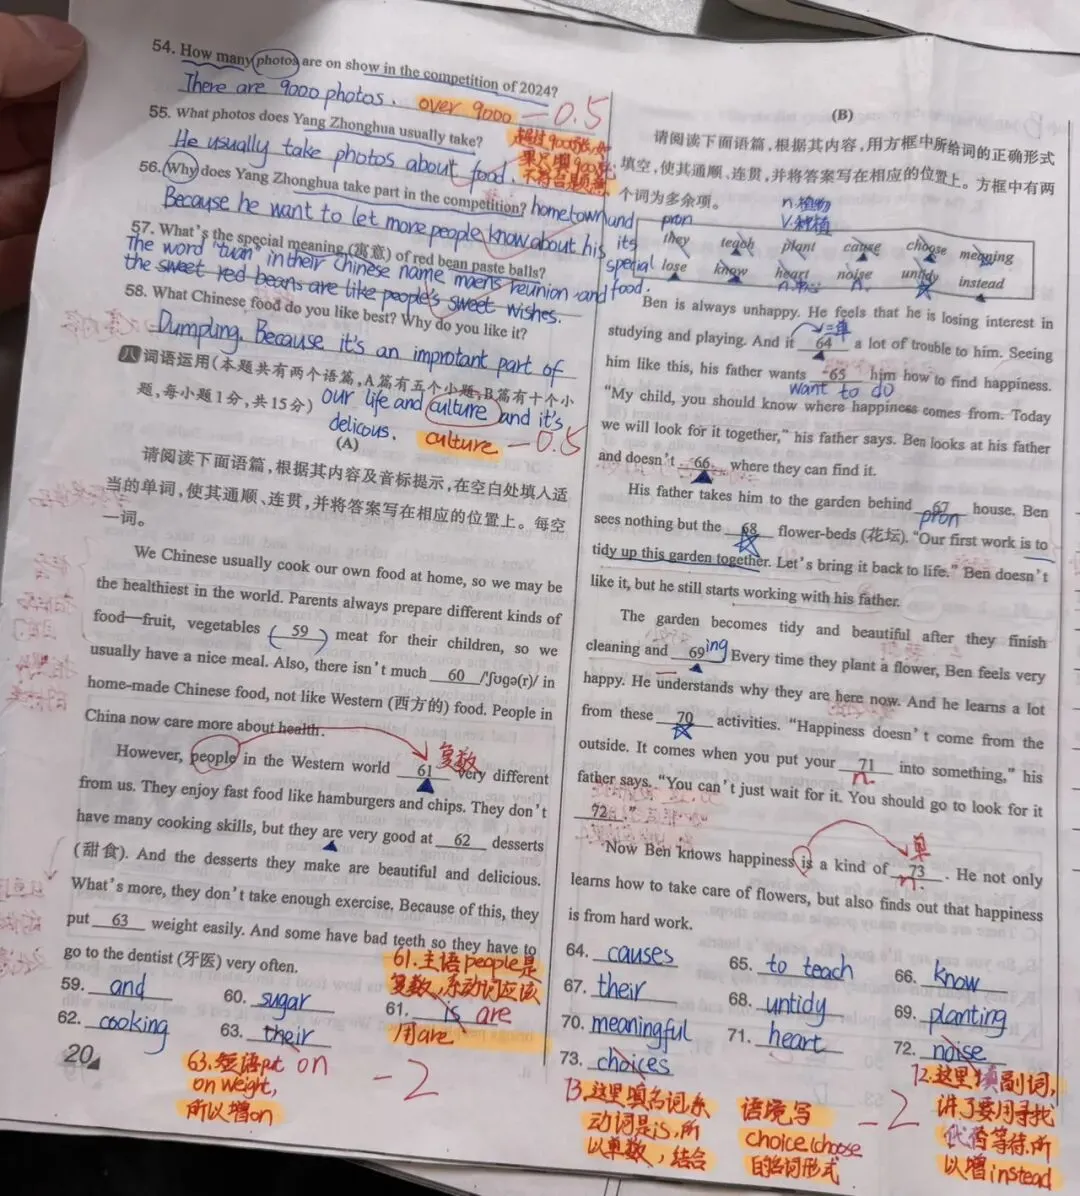 54. How many photos are on show in the competition of 2024?
There are 9000 photos. over 9000 -0.5
55. What photos does Yang Zhonghua usually take?
He usually take photos about food.
56. Why does Yang Zhonghua take part in the competition? hometown and
Because he want to let more people know about his its
57. What's the special meaning (寓意) of red bean paste balls? special
The word "tuan" in their Chinese name maens reunion and food.
the sweet red beans are like people's sweet wishes.
58. What Chinese food do you like best? Why do you like it?
Dumpling. Because it's an improtant part of
八 词语运用(本题共有两个语篇,A篇有五个小题,B篇有十个小
题,每小题1分,共15分) our life and culture and it's
delicous. culture -0.5
(A)
请阅读下面语篇,根据其内容及音标提示,在空白处填入适
当的单词,使其通顺、连贯,并将答案写在相应的位置上。每空
一词。
We Chinese usually cook our own food at home, so we may be
the healthiest in the world. Parents always prepare different kinds of
food—fruit, vegetables ( 59 ) meat for their children, so we
usually have a nice meal. Also, there isn't much 60 /ˈʃʊɡə(r)/ in
home-made Chinese food, not like Western (西方的) food. People in
China now care more about health.
However, people in the Western world 61 very different 复数
from us. They enjoy fast food like hamburgers and chips. They don't
have many cooking skills, but they are very good at 62 desserts
(甜食). And the desserts they make are beautiful and delicious.
What's more, they don't take enough exercise. Because of this, they
put 63 weight easily. And some have bad teeth so they have to
go to the dentist (牙医) very often.
61.主语people是
复数,系动词应该
用are
59. and 60. sugar 61. is are
62. cooking 63. their on
63.短语put
on weight,
所以增on
-2
20
(B)
请阅读下面语篇,根据其内容,用方框中所给词的正确形式
填空,使其通顺、连贯,并将答案写在相应的位置上。方框中有两
个词为多余项。 n.植物
pron v.种植
they teach plant cause choose meaning
lose know heart noise untidy instead
n. n.
Ben is always unhappy. He feels that he is losing interest in
studying and playing. And it 64 a lot of trouble to him. Seeing
him like this, his father wants 65 him how to find happiness.
want to do
"My child, you should know where happiness comes from. Today
we will look for it together," his father says. Ben looks at his father
and doesn't 66 where they can find it.
His father takes him to the garden behind 67 house. Ben
pron
sees nothing but the 68 flower-beds (花坛). "Our first work is to
tidy up this garden together. Let's bring it back to life." Ben doesn't
like it, but he still starts working with his father.
The garden becomes tidy and beautiful after they finish
cleaning and 69 ing Every time they plant a flower, Ben feels very
happy. He understands why they are here now. And he learns a lot
from these 70 activities. "Happiness doesn't come from the
outside. It comes when you put your 71 into something," his
n.
father says. "You can't just wait for it. You should go to look for it
72 ."
单
Now Ben knows happiness is a kind of 73 . He not only
n.
learns how to take care of flowers, but also finds out that happiness
is from hard work.
64. causes 65. to teach 66. know
67. their 68. untidy 69. planting
70. meaningful 71. heart 72. noise
73. choices
这里填名词,系
动词是is,所
以单数,结合
语境写
choice(choose
的名词形式
-2
这里填副词,
讲了要用寻找
代替等待,所
以增instead